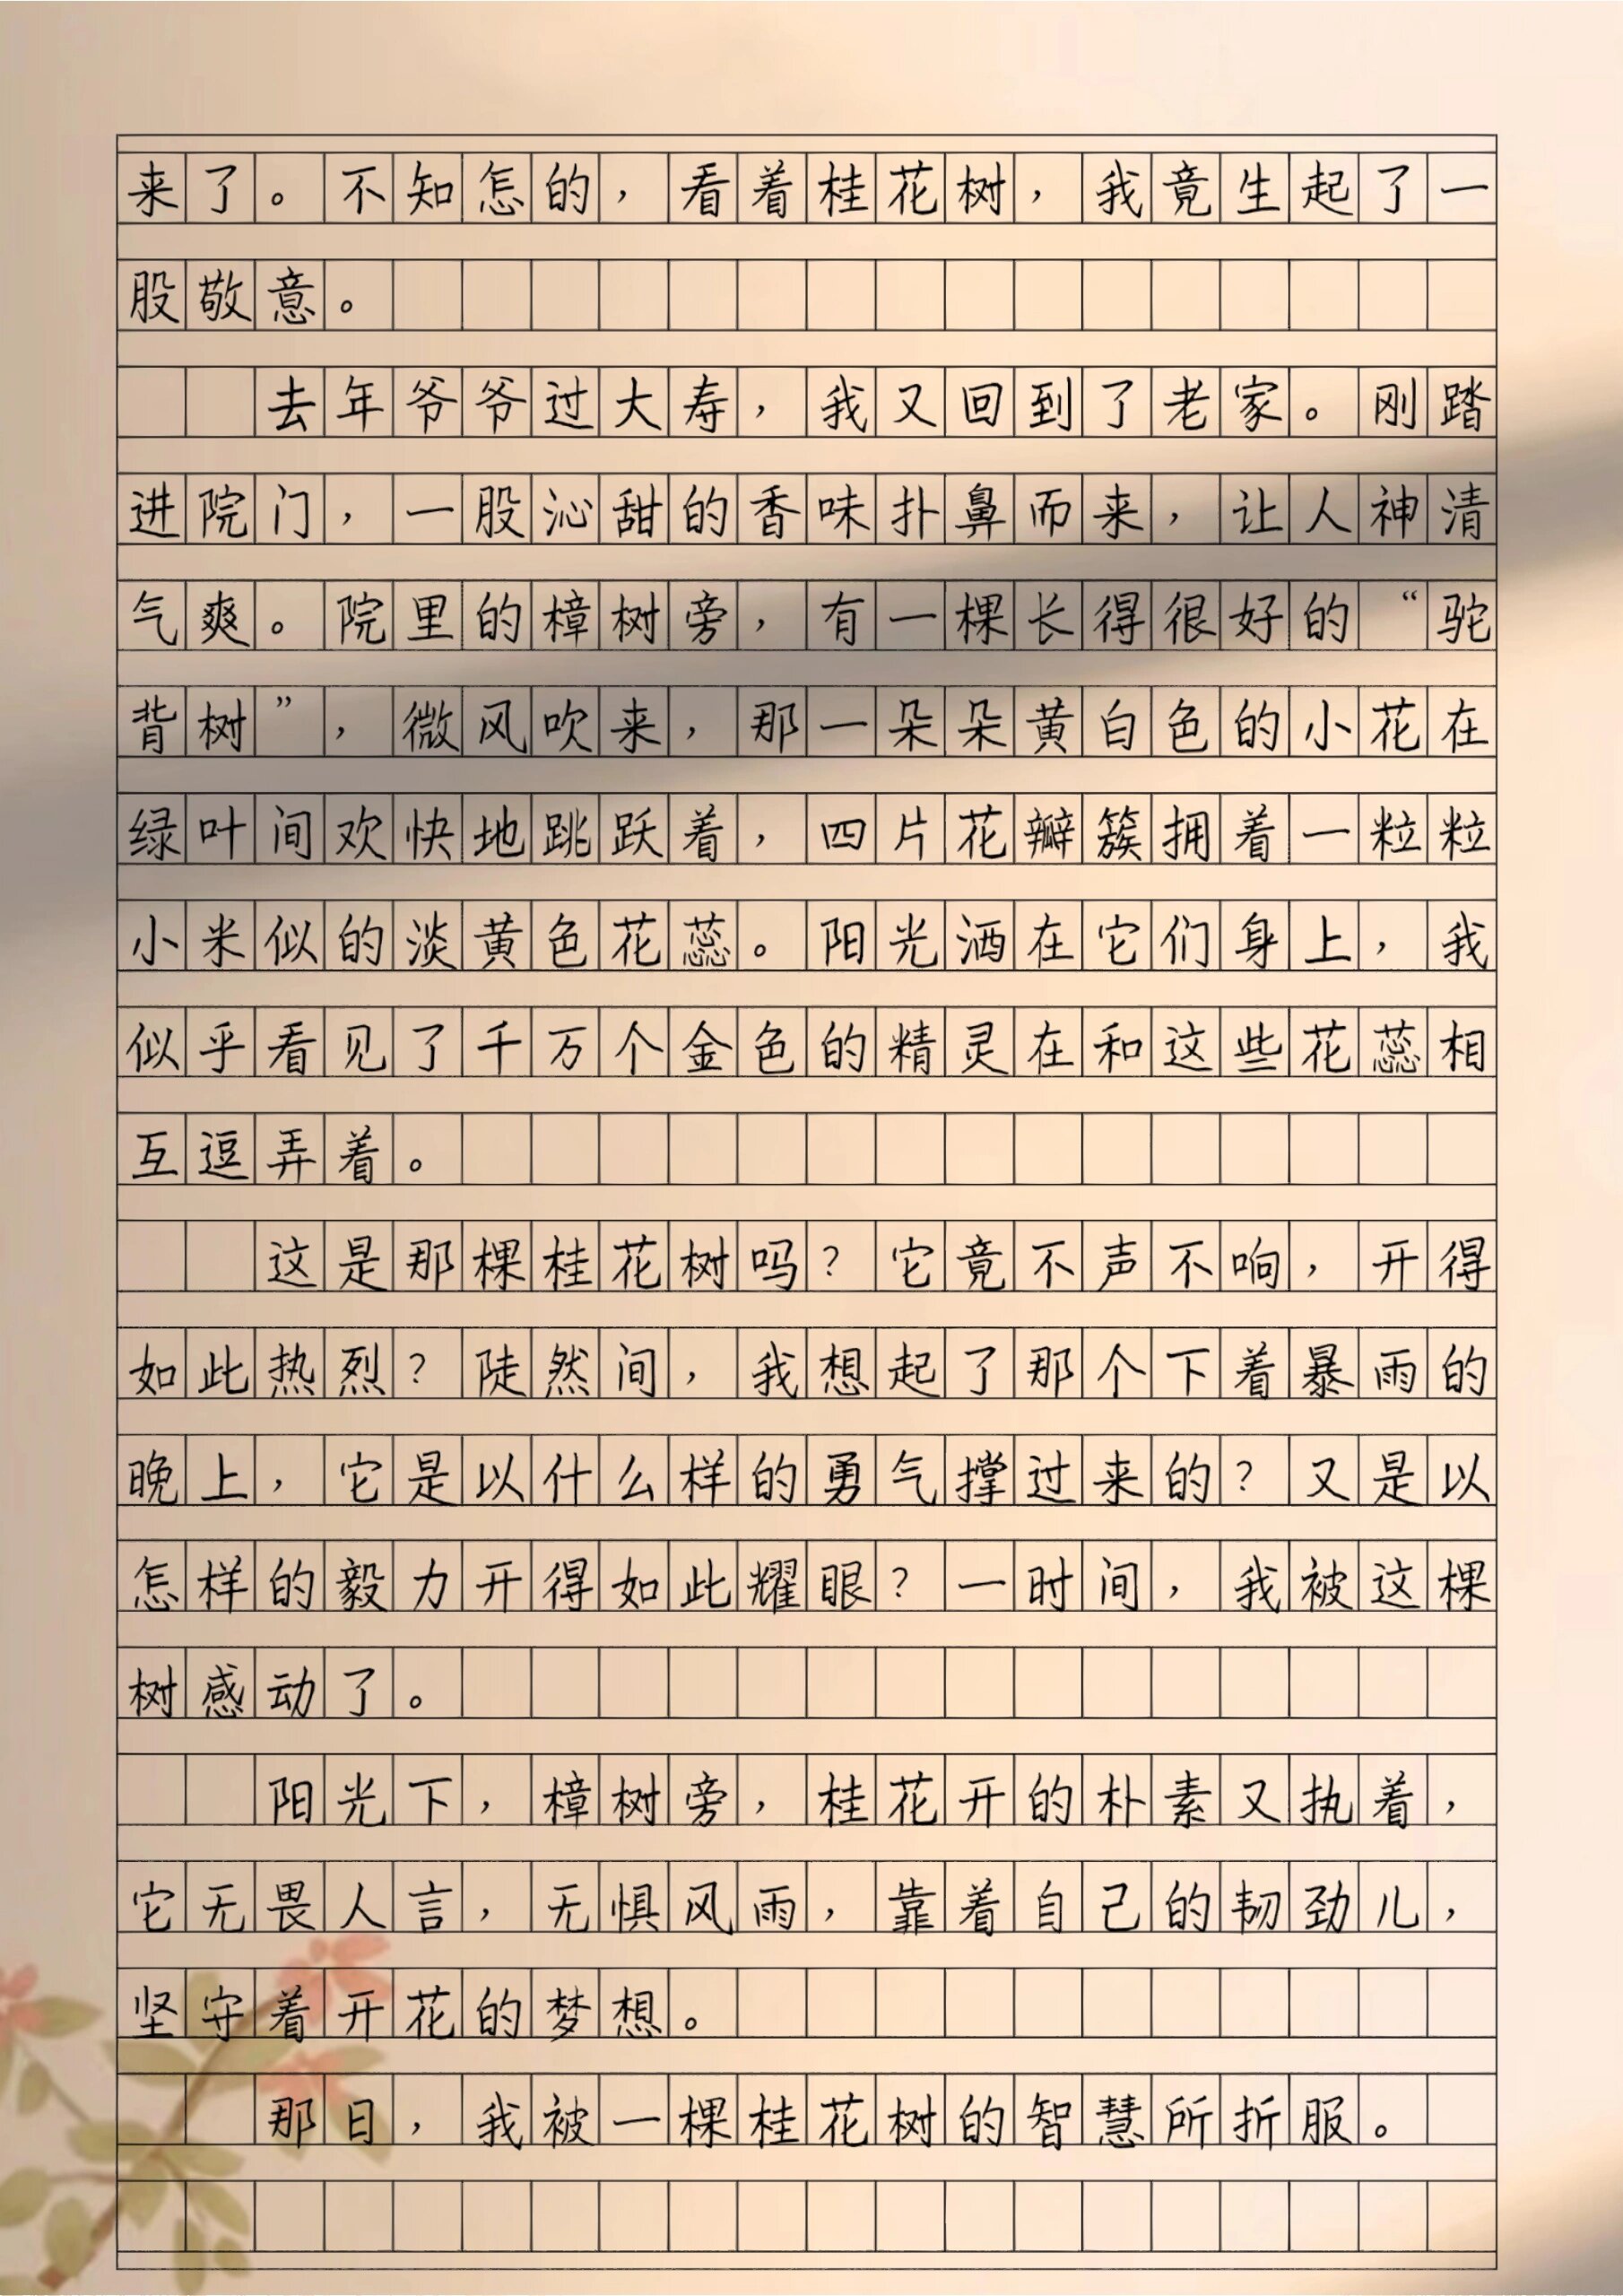 来了。不知怎的，看着桂花树，我竟生起了一
股敬意。
去年爷爷过大寿，我又回到了老家。刚踏
进院门，一股沁甜的香味扑鼻而来，让人神清
气爽。院里的樟树旁，有一棵长得很好的“驼
背树”，微风吹来，那一朵朵黄白色的小花在
绿叶间欢快地跳跃着，四片花瓣簇拥着一粒粒
小米似的淡黄色花蕊。阳光洒在它们身上，我
似乎看见了千万个金色的精灵在和这些花蕊相
互逗弄着。
这是那棵桂花树吗？它竟不声不响，开得
如此热烈？陡然间，我想起了那个下着暴雨的
晚上，它是以什么样的勇气撑过来的？又是以
怎样的毅力开得如此耀眼？一时间，我被这棵
树感动了。
阳光下，樟树旁，桂花开的朴素又执着，
它无畏人言，无惧风雨，靠着自己的韧劲儿，
坚守着开花的梦想。
那日，我被一棵桂花树的智慧所折服。